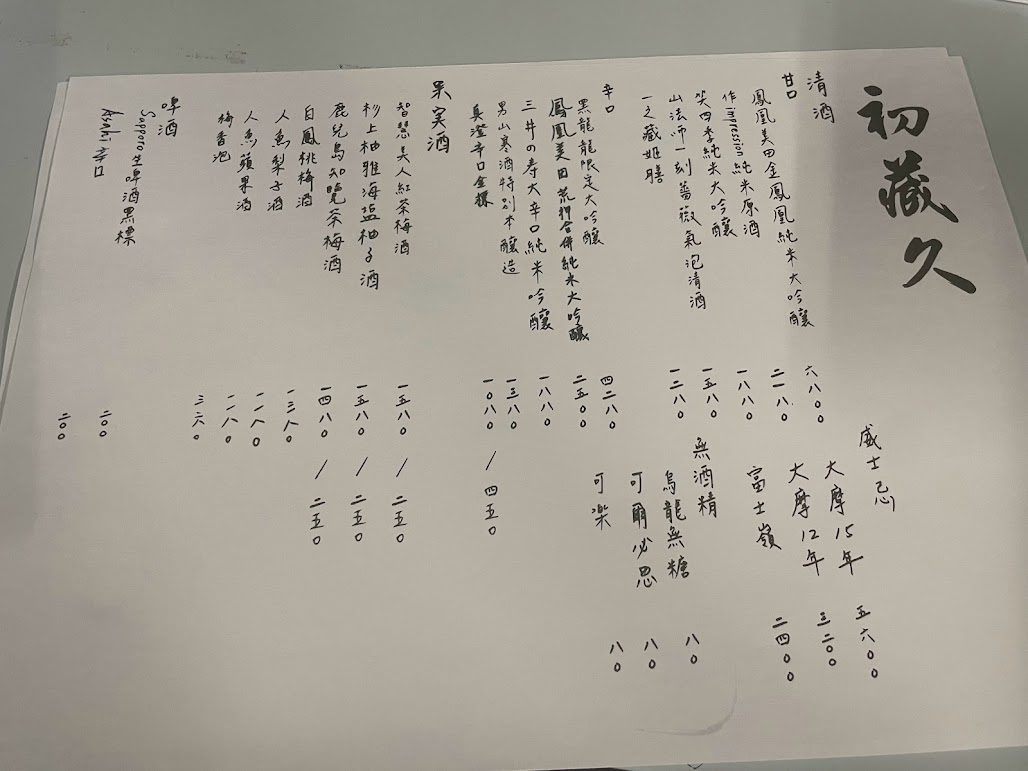 初藏久
清酒
甘口
鳳凰美田金鳳凰純米大吟釀 六八〇〇
作impression純米原酒 二一八〇
笑四季純米大吟釀 一八八〇
山法師一刻薔薇氣泡清酒 一五八〇
一之藏姬膳 一二八〇
辛口
黑龍龍限定大吟釀 四二八〇
鳳凰美田荒押合併純米大吟釀 二五〇〇
三井の寿大辛口純米吟釀 一八八〇
男山寒酒特別本釀造 一三八〇
真澄辛口金標 一〇八〇 / 四五〇
果実酒
智慧美人紅茶梅酒 一五八〇 / 二五〇
杉上柚雅海盐柚子酒 一五八〇 / 二五〇
鹿兒島知覽茶梅酒 一四八〇 / 二五〇
白鳳桃梅酒 一三八〇
人魚梨子酒 一二八〇
人魚蘋果酒 一二八〇
梅香泡 三六〇
啤酒
Sapporo生啤酒黑標 二〇〇
Asahi 辛口 二〇〇
威士忌
大摩15年 五六〇〇
大摩12年 三二〇〇
富士嶺 二四〇〇
無酒精
烏龍無糖 八〇
可爾必思 八〇
可樂 八〇